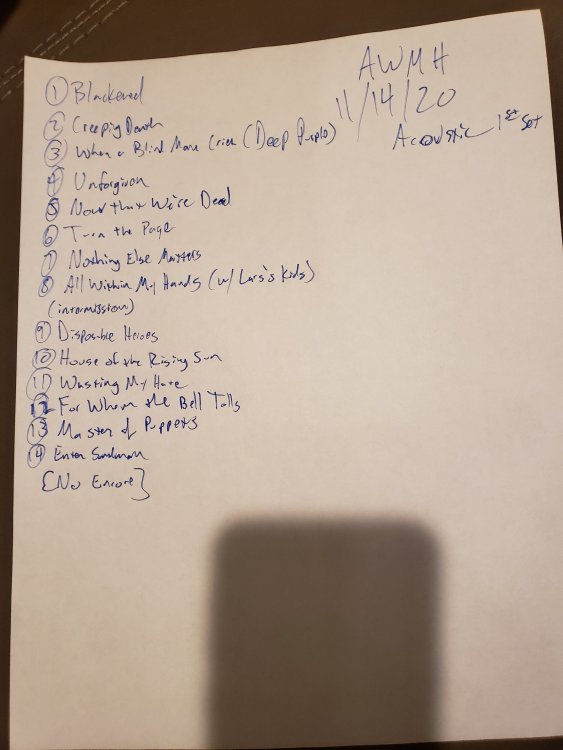 AWMH
11/14/20
Acoustic 1st Set
1 Blackened
2 Creeping Death
3 When a Blind Man Cries (Deep Purple)
4 Unforgiven
5 Now that We're Dead
6 Turn the Page
7 Nothing Else Matters
8 All Within My Hands (w/ Lars's Kids)
(intermission)
9 Disposable Heroes
10 House of the Rising Sun
11 Wasting My Hate
12 For Whom the Bell Tolls
13 Master of Puppets
14 Enter Sandman
[No Encore]